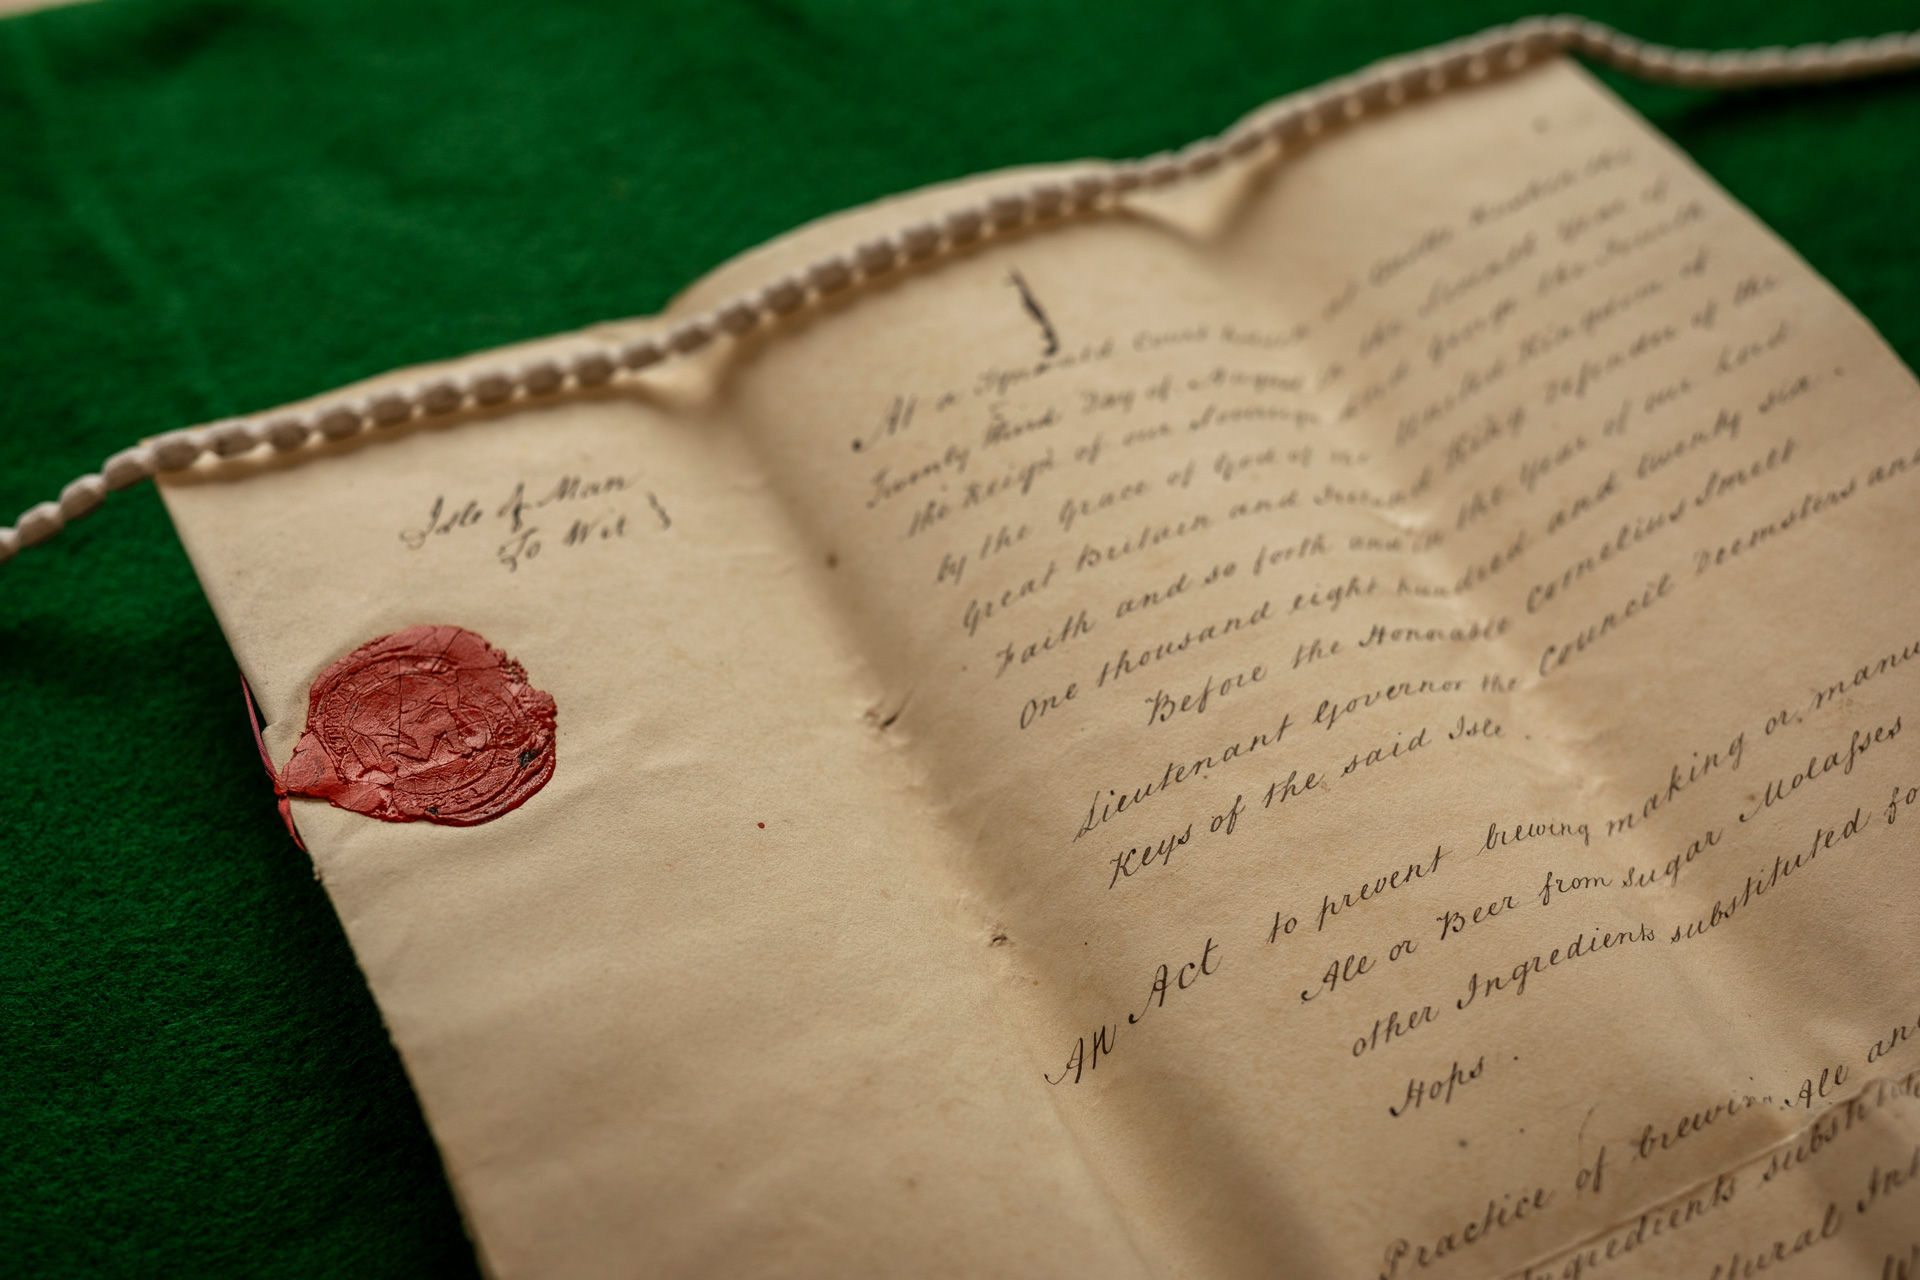 Isle of Man
To Wit
At a Tynwald Court holden at Castle Rushen the
Twenty third Day of August in the Seventh Year of
the Reign of our Sovereign Lord George the Fourth
by the Grace of God of the United Kingdom of
Great Britain and Ireland King Defender of the
Faith and so forth and in the Year of our Lord
One thousand eight hundred and twenty six.
Before the Honorable Cornelius Smelt
Lieutenant Governor the Council Deemsters and
Keys of the said Isle.
An Act to prevent brewing making or manu
Ale or Beer from sugar Molasses
other Ingredients substituted fo
Hops.
Practice of brewing Ale and
Ingredients substitu